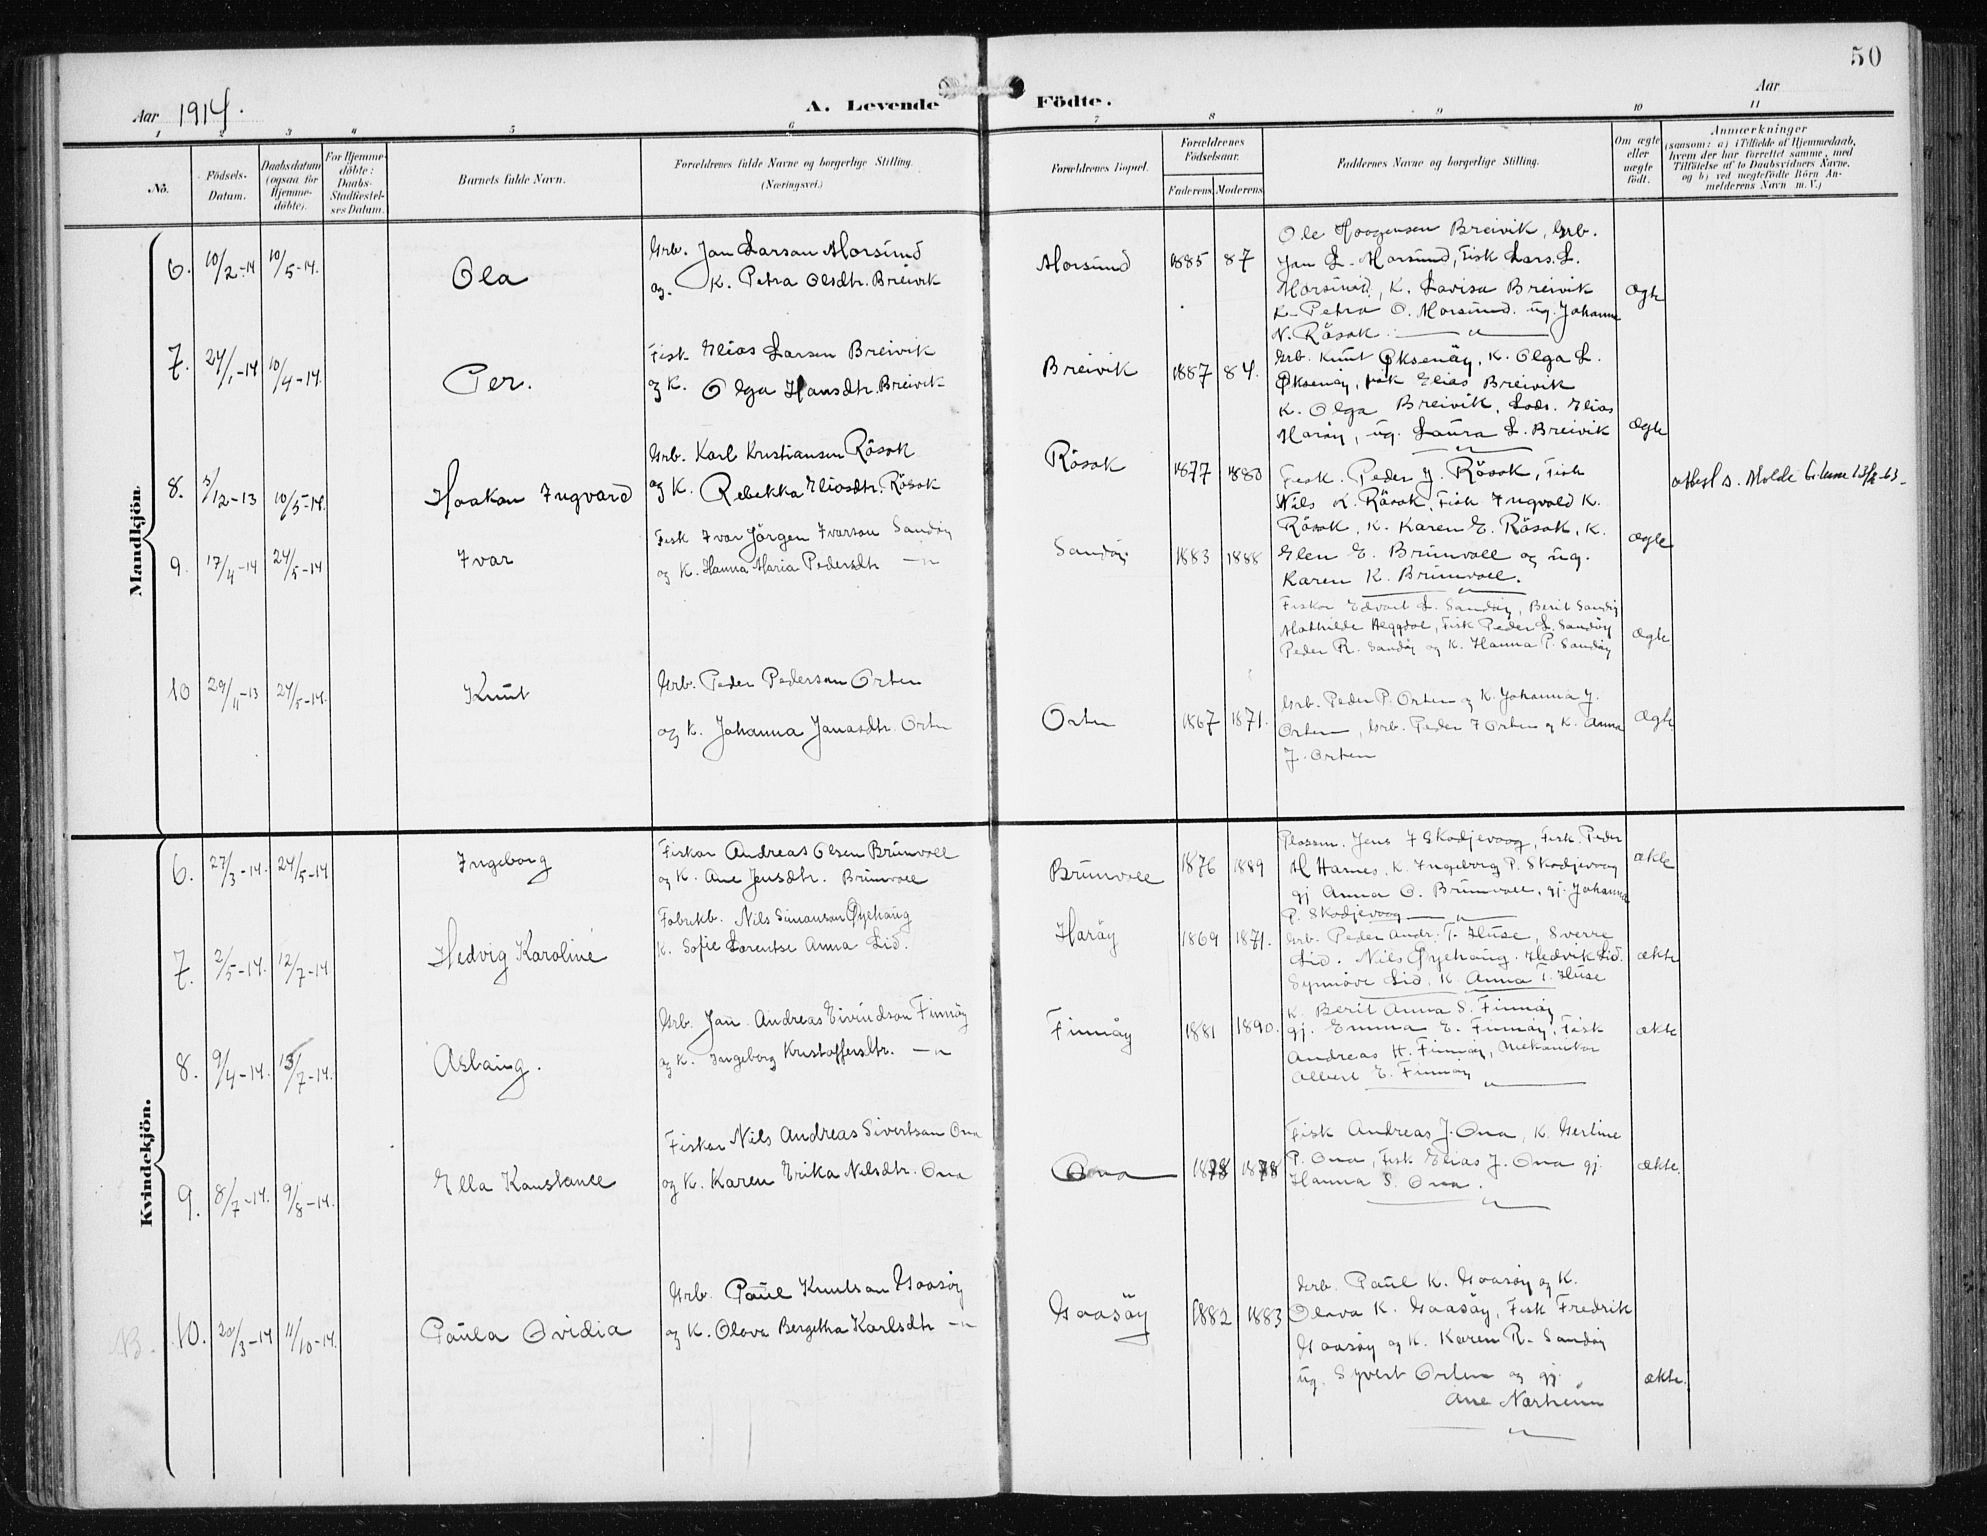 50
Aar 1914.
A. Levende Födte.
Aar
1 2 3 4 5 6 7 8 9 10 11
No.
Födsels-Datum.
Daabsdatum (ogsaa for Hjemme-döbte).
For Hjemme-döbte: Daabs-Stadfæstel-ses Datum.
Barnets fulde Navn.
Forældrenes fulde Navne og borgerlige Stilling. (Næringsvei.)
Forældrenes Bopæl.
Forældrenes Födselsaar.
Faderens Moderens
Faddernes Navne og borgerlige Stilling.
Om ægte eller uægte födt.
Anmærkninger
(saasom: a) i Tilfælde af Hjemmedaab,
hvem der har forrettet samme, med
Tilföielse af to Daabsvidners Navne,
og b) ved uægtefödte Börn An-
melderens Navn m. V.)
Mandkjön.
6. 10/2-14 10/5-14. Ola
Grb. Jan Larsen Morsund
og K. Petra Olsdtr. Breivik
Morsund 1885 87
Ole Haagensen Breivik, Grb.
Jan L. Morsund, Fisk Lars L.
Morsund, K. Lavisa Breivik
K. Petra O. Morsund. ug. Johanne
N. Rösok
Ægte
7. 24/1-14 10/4-14. Per.
Fisk Elias Larsen Breivik
og K. Olga Hansdtr. Breivik
Breivik 1887 84.
Grb. Knut Øksenöy, K. Olga L.
Øksenöy, fisk Elias Breivik
K. Olga Breivik, Lods. Elias
Haröy, ug. Laura L. Breivik
Ægte
8. 5/12-13 10/5-14. Haakon Ingvard
Grb. Karl Kristiansen Rösok
og K. Rebekka Eliasdtr. Rösok
Rösok 1877 1880
Fisk. Peder J. Rösok, Fisk
Nils K. Rösok, Fisk Ingvald K.
Rösok, K. Karen E. Rösok, K.
Elen E. Brunvoll og ug.
Karen K. Brunvoll.
Ægte
9. 17/4-14 24/5-14 Ivar
Fisk Ivar Jörgen Ivarson Sandöy
og K. Hanna Maria Pedersdtr —"—
Sandöy. 1883 1888
Fisker Edvart L. Sandöy, Berit Sandöy
Mathilde Heggdal, Fisk Peder L. Sandöy
Peder R. Sandöy og K. Hanna P. Sandöy
Ægte
10 29/11-13 24/5-14. Knut
Grb. Peder Pedersen Orten
og K. Johanna Jonasdtr. Orten
Orten 1867 1871.
Grb. Peder P. Orten og K. Johanna J.
Orten, Grb. Peder I Orten og K. Anna
J. Orten
Ægte
Kvindekjön.
6. 27/3-14. 24/5-14 Ingeborg
Fisker Andreas Olsen Brunvoll
og K. Ane Jensdtr. Brunvoll
Brunvoll 1876 1889
Jens I Skodjevaag, Fisk. Peder
M Harnes, K. Ingeborg P. Skodjevaag
gj Anna O. Brunvoll, gj. Johanna
P. Skodjevaag
ækte
7. 2/5-14. 12/7-14 Hedvig Karoline
Fabrikb. Nils Simonson Øyehaug
K. Sofie Lorentse Anna Lid.
Haröy 1869 1871.
Grb. Peder Andr. T. Huse, Sverre
Lid. Nils Øyehaug. Hedvik Lid.
Synnöve Lid, K. Anna T. Huse
ækte
8. 9/4-14. 13/7-14. Aslaug.
Grb. Jan Andreas Eivindson Finnöy
og K. Ingeborg Kristoffersdtr. —"—
Finnöy 1881 1890.
K. Berit Anna S. Finnöy
gj. Emma E. Finnöy, Fisk
Andreas H. Finnöy, Mekaniker
Albert E. Finnöy
ækte
9. 8/7-14. 9/8-14. Ella Konstance
Fisker Nils Andreas Sivertson Ona
og K. Karen Erika Nilsdtr. Ona
Ona 1878 1878
Fisk Andreas J. Ona, K. Gerline
P. Ona, Fisk Elias J. Ona gj.
Hanna S. Ona.
ækte.
NB. 10. 20/3-14 11/10-14. Paula Ovidia
Grb. Paul Knutson Gaasöy
og K. Olava Bergetha Karlsdtr —"—
Gaasöy 1882 1883
Grb. Paul K. Gaasöy og K.
Olava K. Gaasöy, Fisk Fredrik
Gaasöy og K. Karen R. Sandöy
ug. Syvert Orten og gj.
Ane Nærheim
ækte.